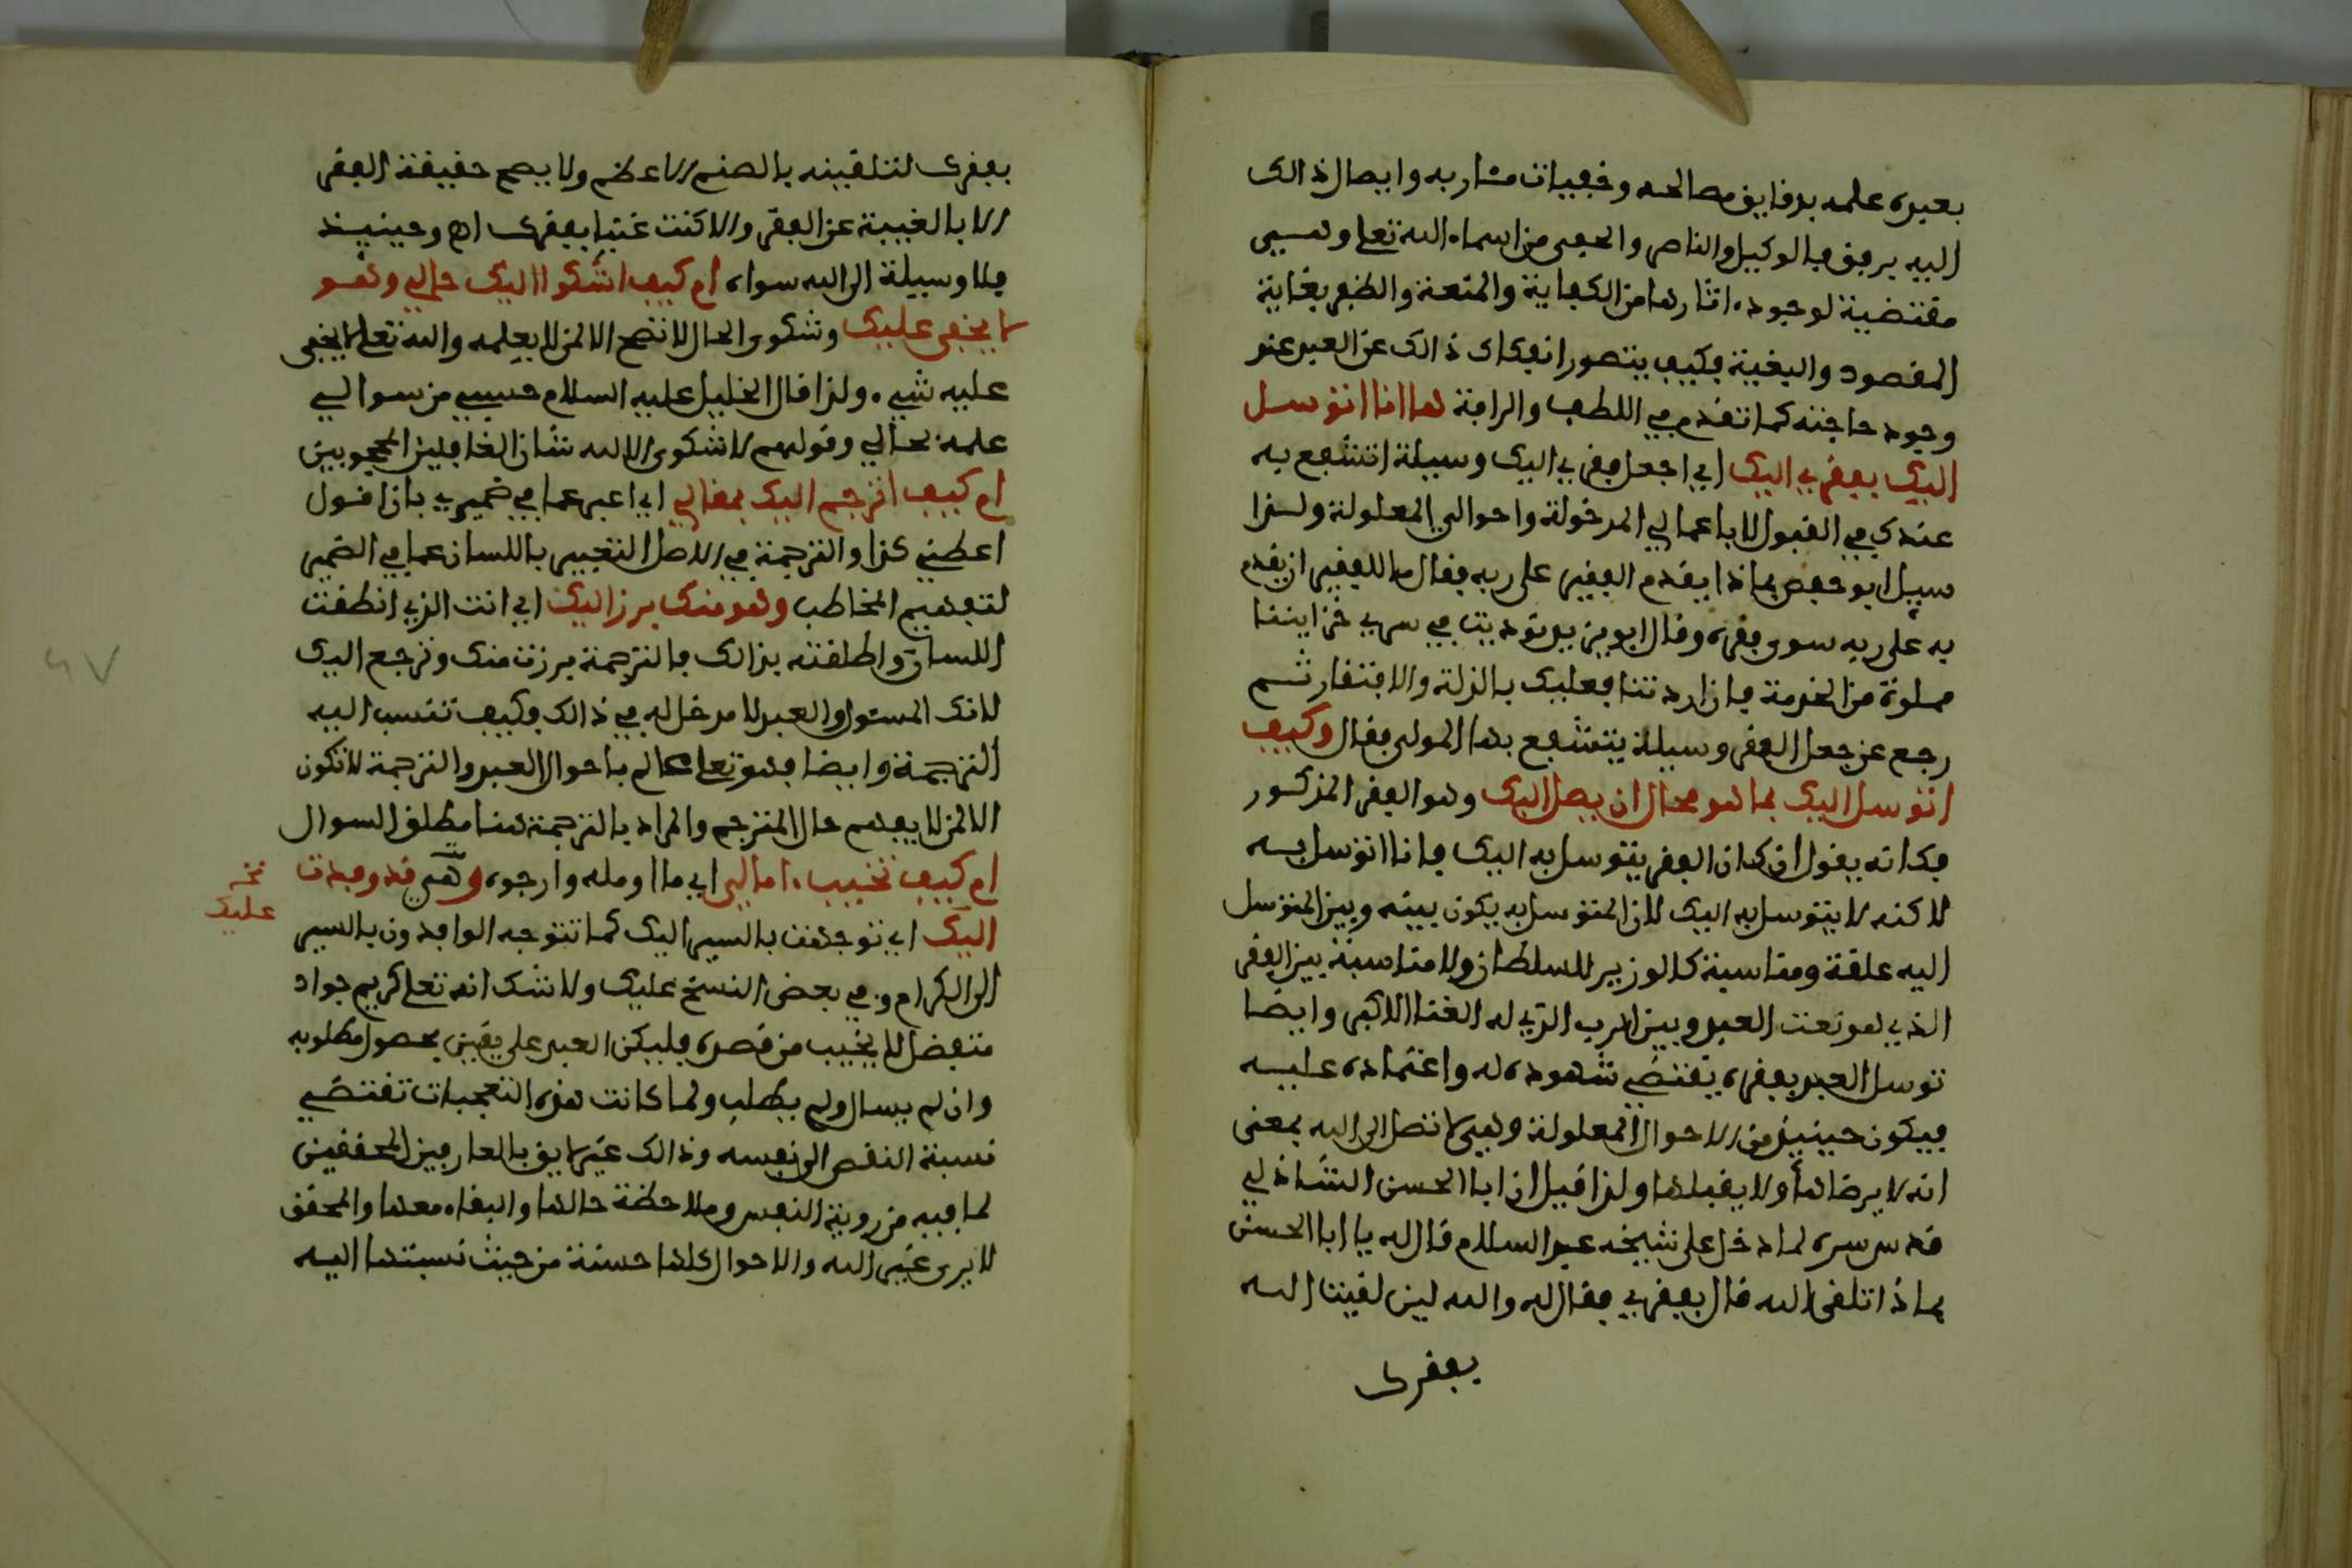 بعبده علمه بدقايق مصالحه وخفيات مشاربه وايصال ذالك
اليه برفق فالوكيل والناصر والحفى من اسماء الله تعلى وهـى
مقتضية لوجود اثارها من الكفاية والمتعة والظفر بغاية
المقصود والبغية فكيف يتصور انفكاك ذالك عن العبد عند
وجود حاجته كما تقدم في اللطف والرافة ها انا اتوسل
اليك بفقري اليك اي اجعل فقري اليك وسيلة اتشفع به
عندك في القبول لا باعمالي المدخولة واحوالي المعلولة ولهذا
سيل ابو حفص بماذا يقدم الفقير على ربه فقال ما للفقير ان يقدم
به على ربه سوى فقره وقال ابو يزيد نوديت في سري خزايننا
مملوة من الخدمة فان اردتنا فعليك بالذلة والافتقار ثم
رجع عن جعل الفقر وسيلة يتشفع بها للمولى فقال وكيف
اتوسل اليك بما هو محال ان يصل اليك وهو الفقر المذكور
فكانه يقول ان كان الفقر يتوسل به اليك فانا اتوسل به
لاكنه لا يتوسل به اليك لان المتوسل به يكون بينه وبين المتوسل
اليه علقة ومناسبة كالوزير للسلطان ولا مناسبة بين الفقر
الذي هو نعت العبد وبين الرب الذي له الغنا الاكبر وايضا
توسل العبد بفقره يقتضي شهوده له واعتماده عليه
فيكون حينيذ من الاحوال المعلولة وهي لا تصل الى الله بمعنى
انه لا يرضاها ولا يقبلها ولذا قيل ان ابا الحسن الشاذلي
قدس سره لما دخل على شيخه عبد السلام قال له يا ابا الحسن
بماذا تلقى الله قال بفقري فقال له والله لين لقيت الله
بفقرك
بفقرك لتلقينه بالصنم الاعظم ولا يصح حقيقة الفقر
الا بالغيبة عن الفقر والا كنت غنيا بفقرك اه وحينيذ
فلا وسيلة الى الله سواه ام كيف اشكوا اليك حالي وهو
لا يخفى عليك وشكوى الحال لا تصح الا لمن لا يعلمه والله تعلى لا يخفى
عليه شيء ولذا قال الخليل عليه السلام حسبي من سوالي
علمه بحالي وقولهم لا شكوى الا لله شان الغافلين المحجوبين
ام كيف اترجم اليك بمقالي اي اعبر عما في ضميري بان اقول
اعطني كذا والترجمة في الاصل التعبير باللسان عما في الضمير
لتفهيم المخاطب وهو منك برز اليك اي انت الذي انطقت
اللسان واطلقته بذالك فالترجمة برزت منك وترجع اليك
لانك المستول والعبد لا مدخل له في ذالك فكيف تنسب اليه
الترجمة وايضا فهو تعلى عالم باحوال العبد والترجمة لا تكون
الا لمن لا يفهم حال المترجم والمراد بالترجمة هنا مطلق السوال
ام كيف تخيب امالي اي ما اومله وارجوه وهي قد وفدت
نخـ
عليك
اليك اي توجهت بالسير اليك كما تتوجه الوافدون بالسير
الى الكرام وفي بعض النسخ عليك ولا شك انه تعلى كريم جواد
متفضل لا يخيب من قصده فليكن العبد على يقين بحصول مطلوبه
وان لم يسال ولم يطلب ولما كانت هذه التعجبات تقتضي
نسبة النقص الى نفسه وذالك غير لايق بالعارفين المحققين
لما فيه من روية النفس وملاحظة حالها والبقاء معها والمحقق
لا يرى غير الله والاحوال كلها حسنة من حيث نسبتها اليه
٤٧